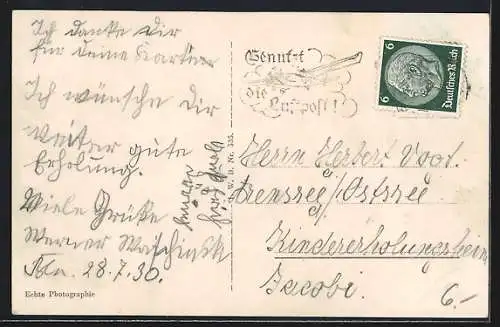 Ich danke Dir
für Deine Karten
Ich wünsche Dir
weiter gute
Erholung.
Viele Grüße
Werner
Bln. 28.7.30.
Echte Photographie
W. B. Nr. 355.
Benutzt
die Luftpost!
6 6
Deutsches Reich
Herrn Herbert Vogt.
Ostsee
Kindererholungsheim
Jacobi.
6.-